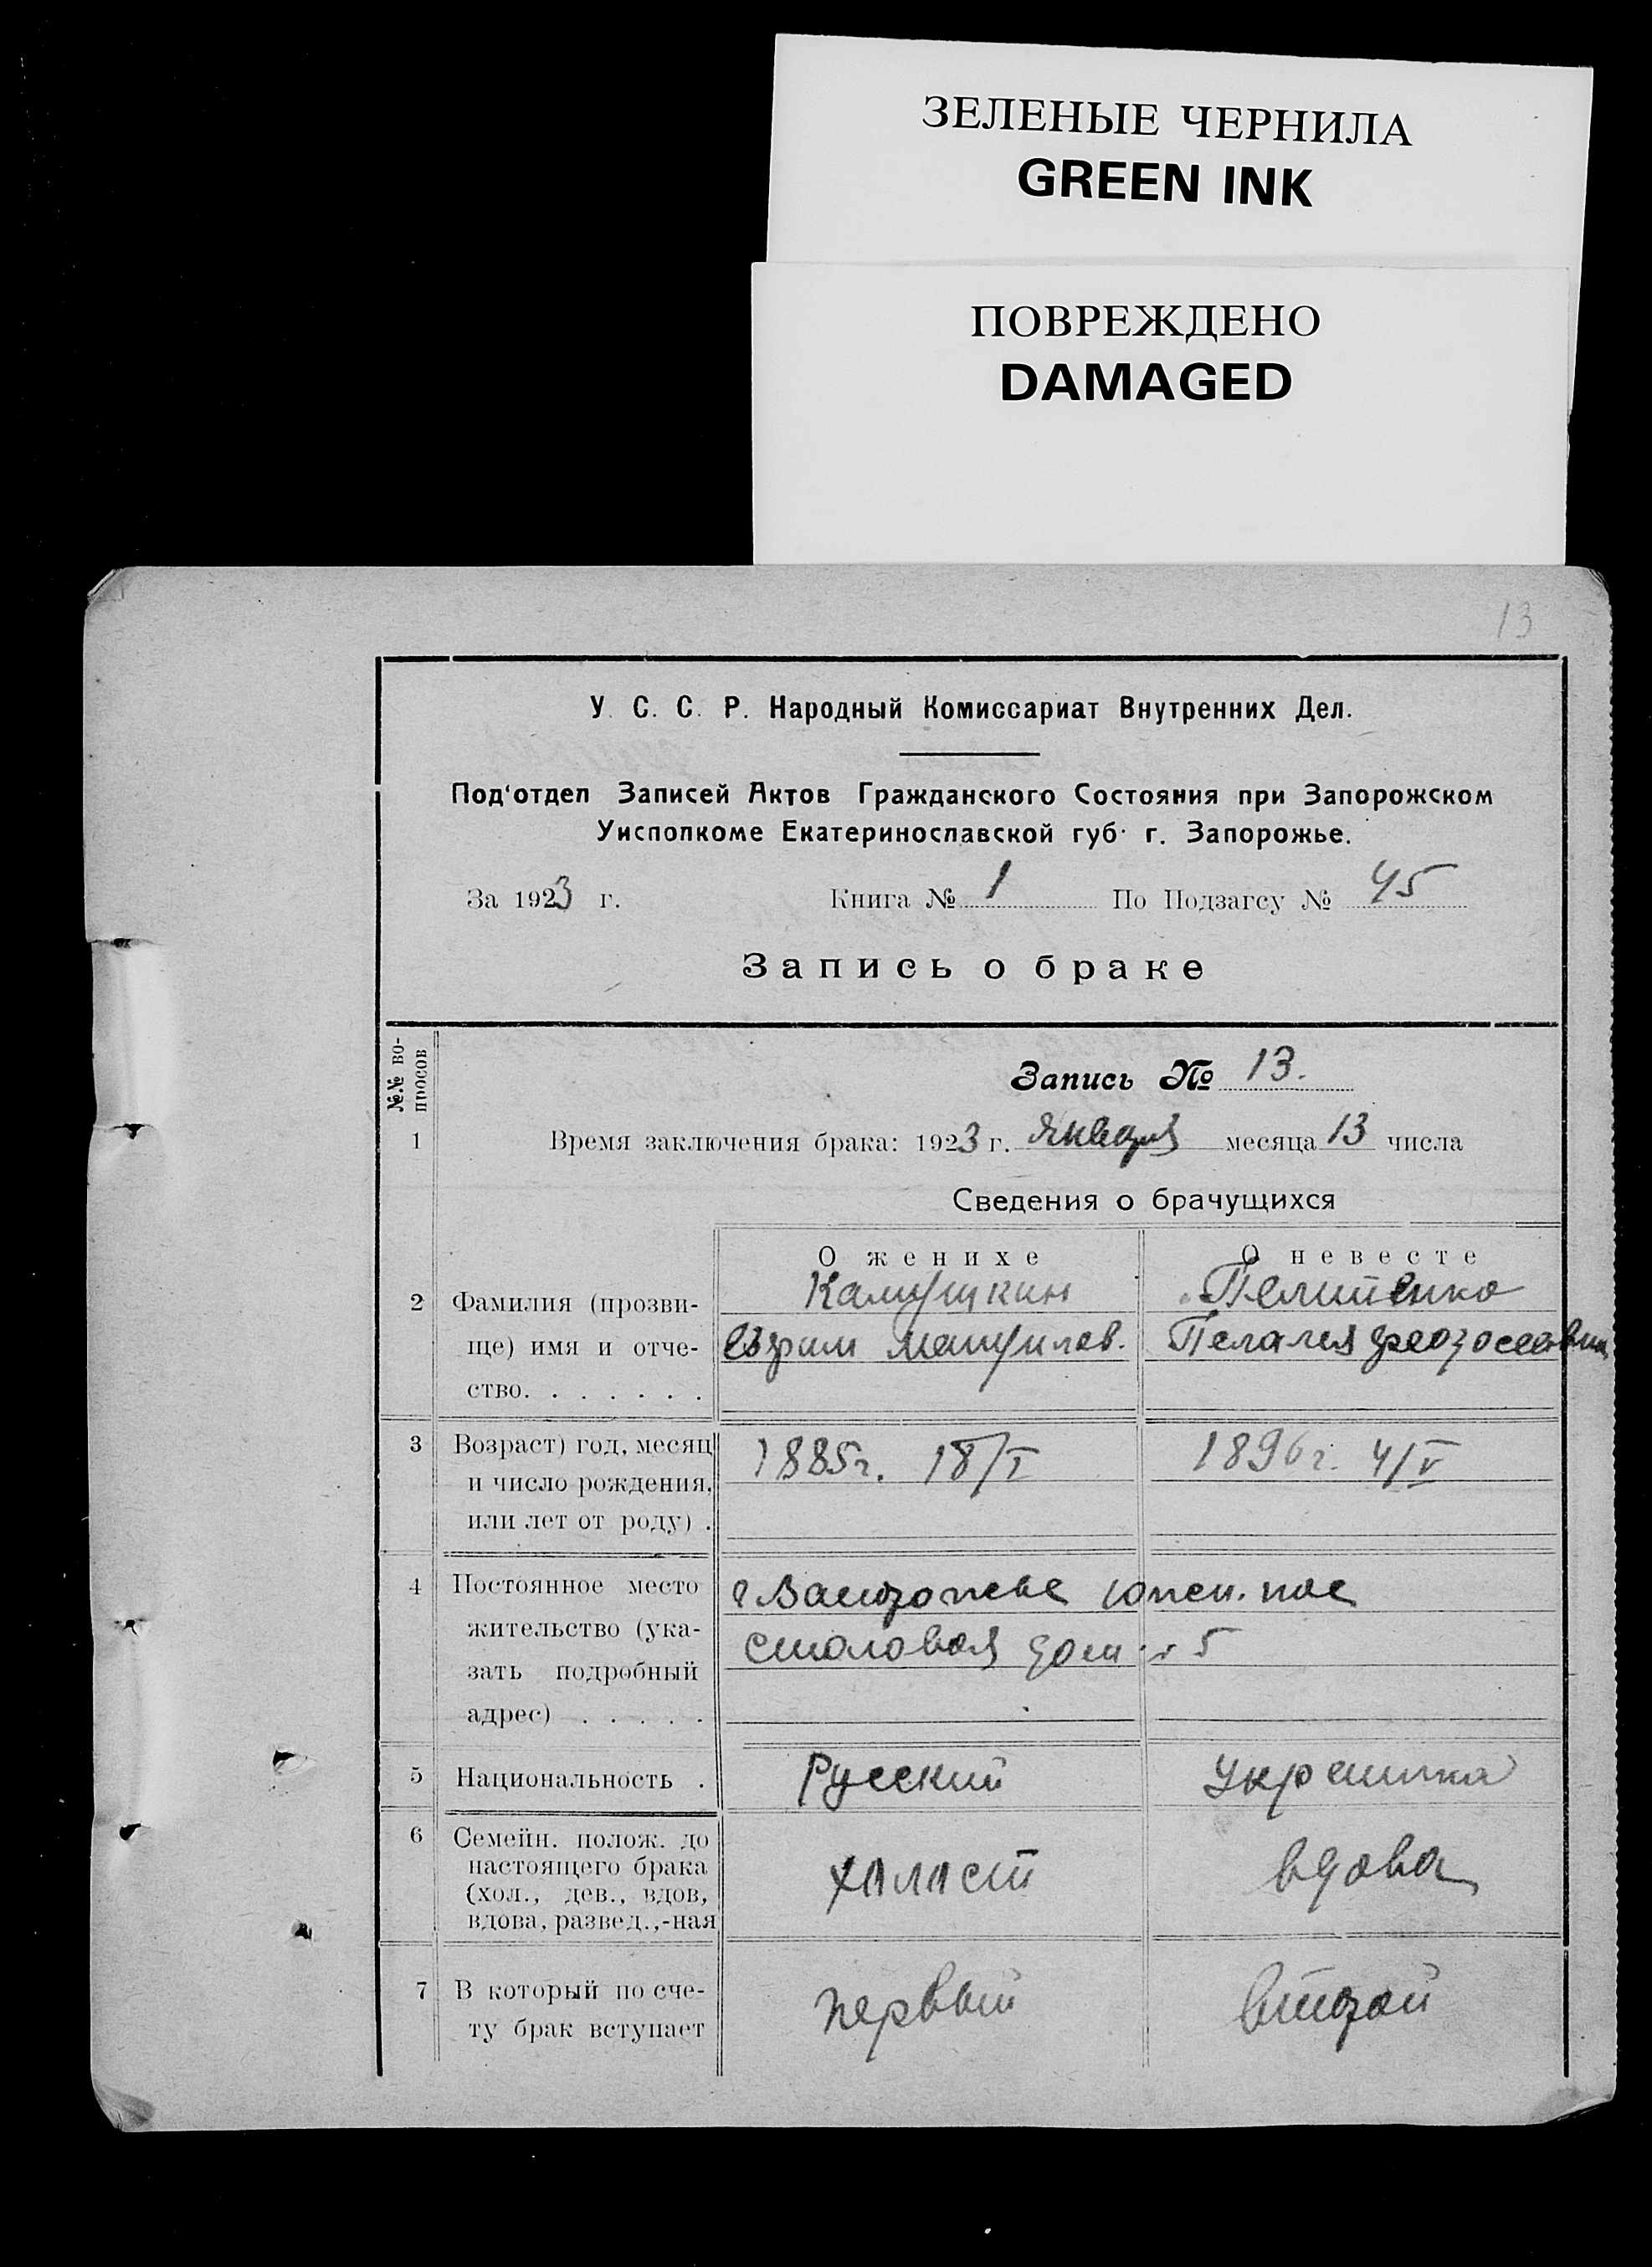 ЗЕЛЕНЫЕ ЧЕРНИЛА
GREEN INK
ПОВРЕЖДЕНО
DAMAGED
13
У. С. С. Р. Народный Комиссариат Внутренних Дел.
Под'отдел Записей Актов Гражданского Состояния при Запорожском
Уисполкоме Екатеринославской губ. г. Запорожье.
За 1923 г. Книга № 1 По Подзагсу № 45
Запись о браке
№.№ во-
просов
Запись № 13.
1 Время заключения брака: 1923 г. Января месяца 13 числа
Сведения о брачущихся
О женихе О невесте
2 Фамилия (прозви-
ще) имя и отче- Пелагея
ство. . . . . . .
3 Возраст) год, месяц 1885г. 18/I 1896г. 4/V
и число рождения,
или лет от роду) .
4 Постоянное место
жительство (ука- столовая дом 5
зать подробный
адрес) . . . . .
5 Национальность . Русский Украинка
6 Семейн. полож. до
настоящего брака
(хол., дев., вдов, халост вдова
вдова, развед.,-ная
7 В который по сче- первый второй
ту брак вступает